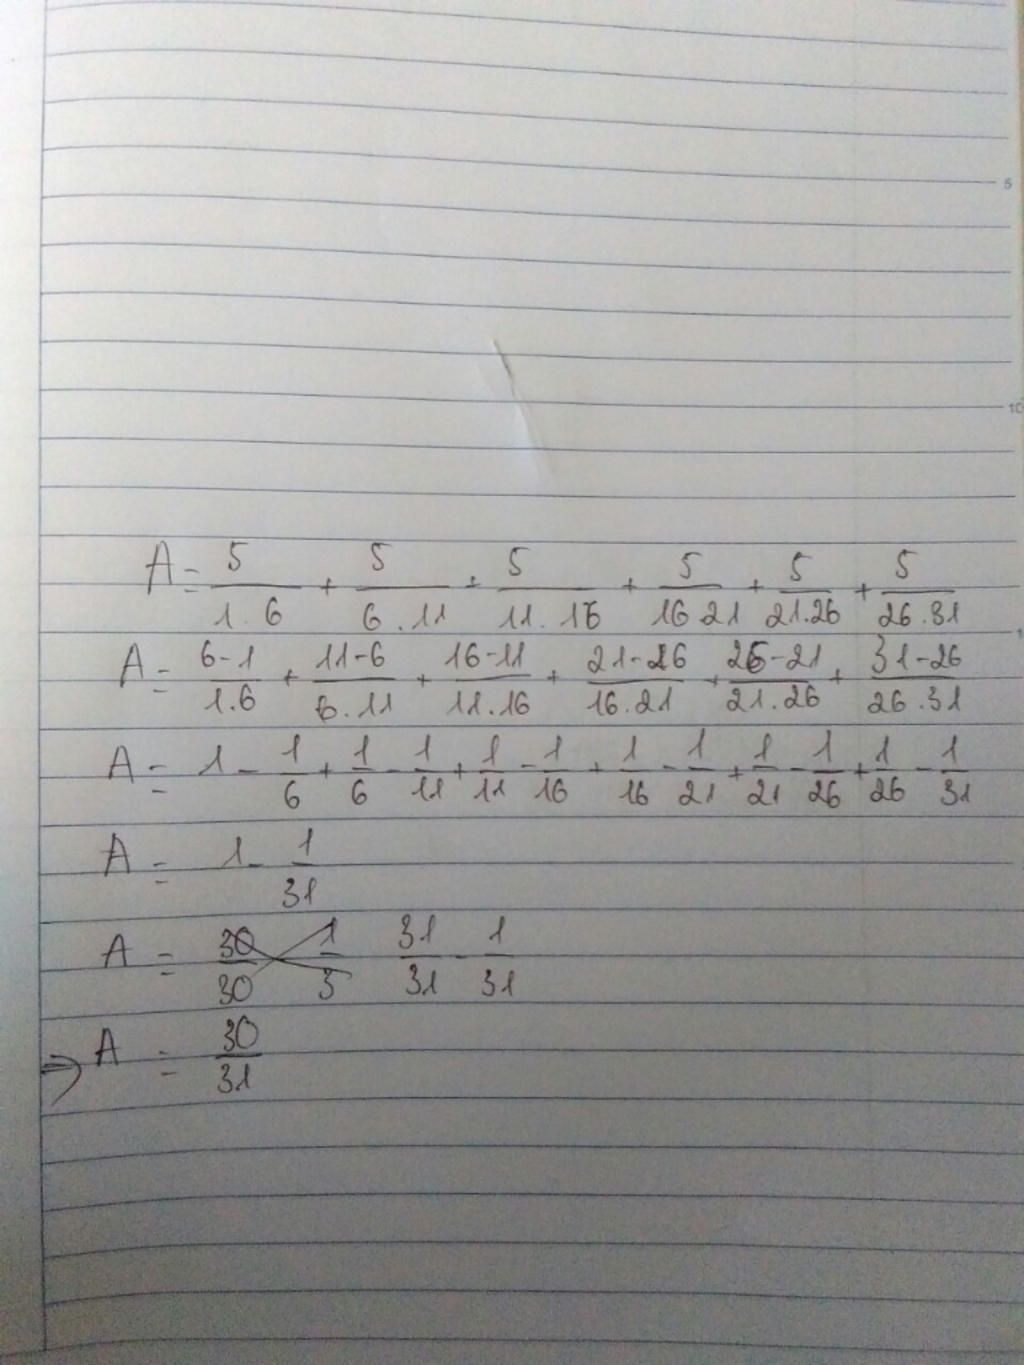 5
10
A = 5/1.6 + 5/6.11 + 5/11.16 + 5/16.21 + 5/21.26 + 5/26.31
A = 6-1/1.6 + 11-6/6.11 + 16-11/11.16 + 21-16/16.21 + 26-21/21.26 + 31-26/26.31
A = 1 - 1/6 + 1/6 - 1/11 + 1/11 - 1/16 + 1/16 - 1/21 + 1/21 - 1/26 + 1/26 - 1/31
A = 1 - 1/31
A = 30/30 1/3 31/31 - 1/31
⇒ A = 30/31